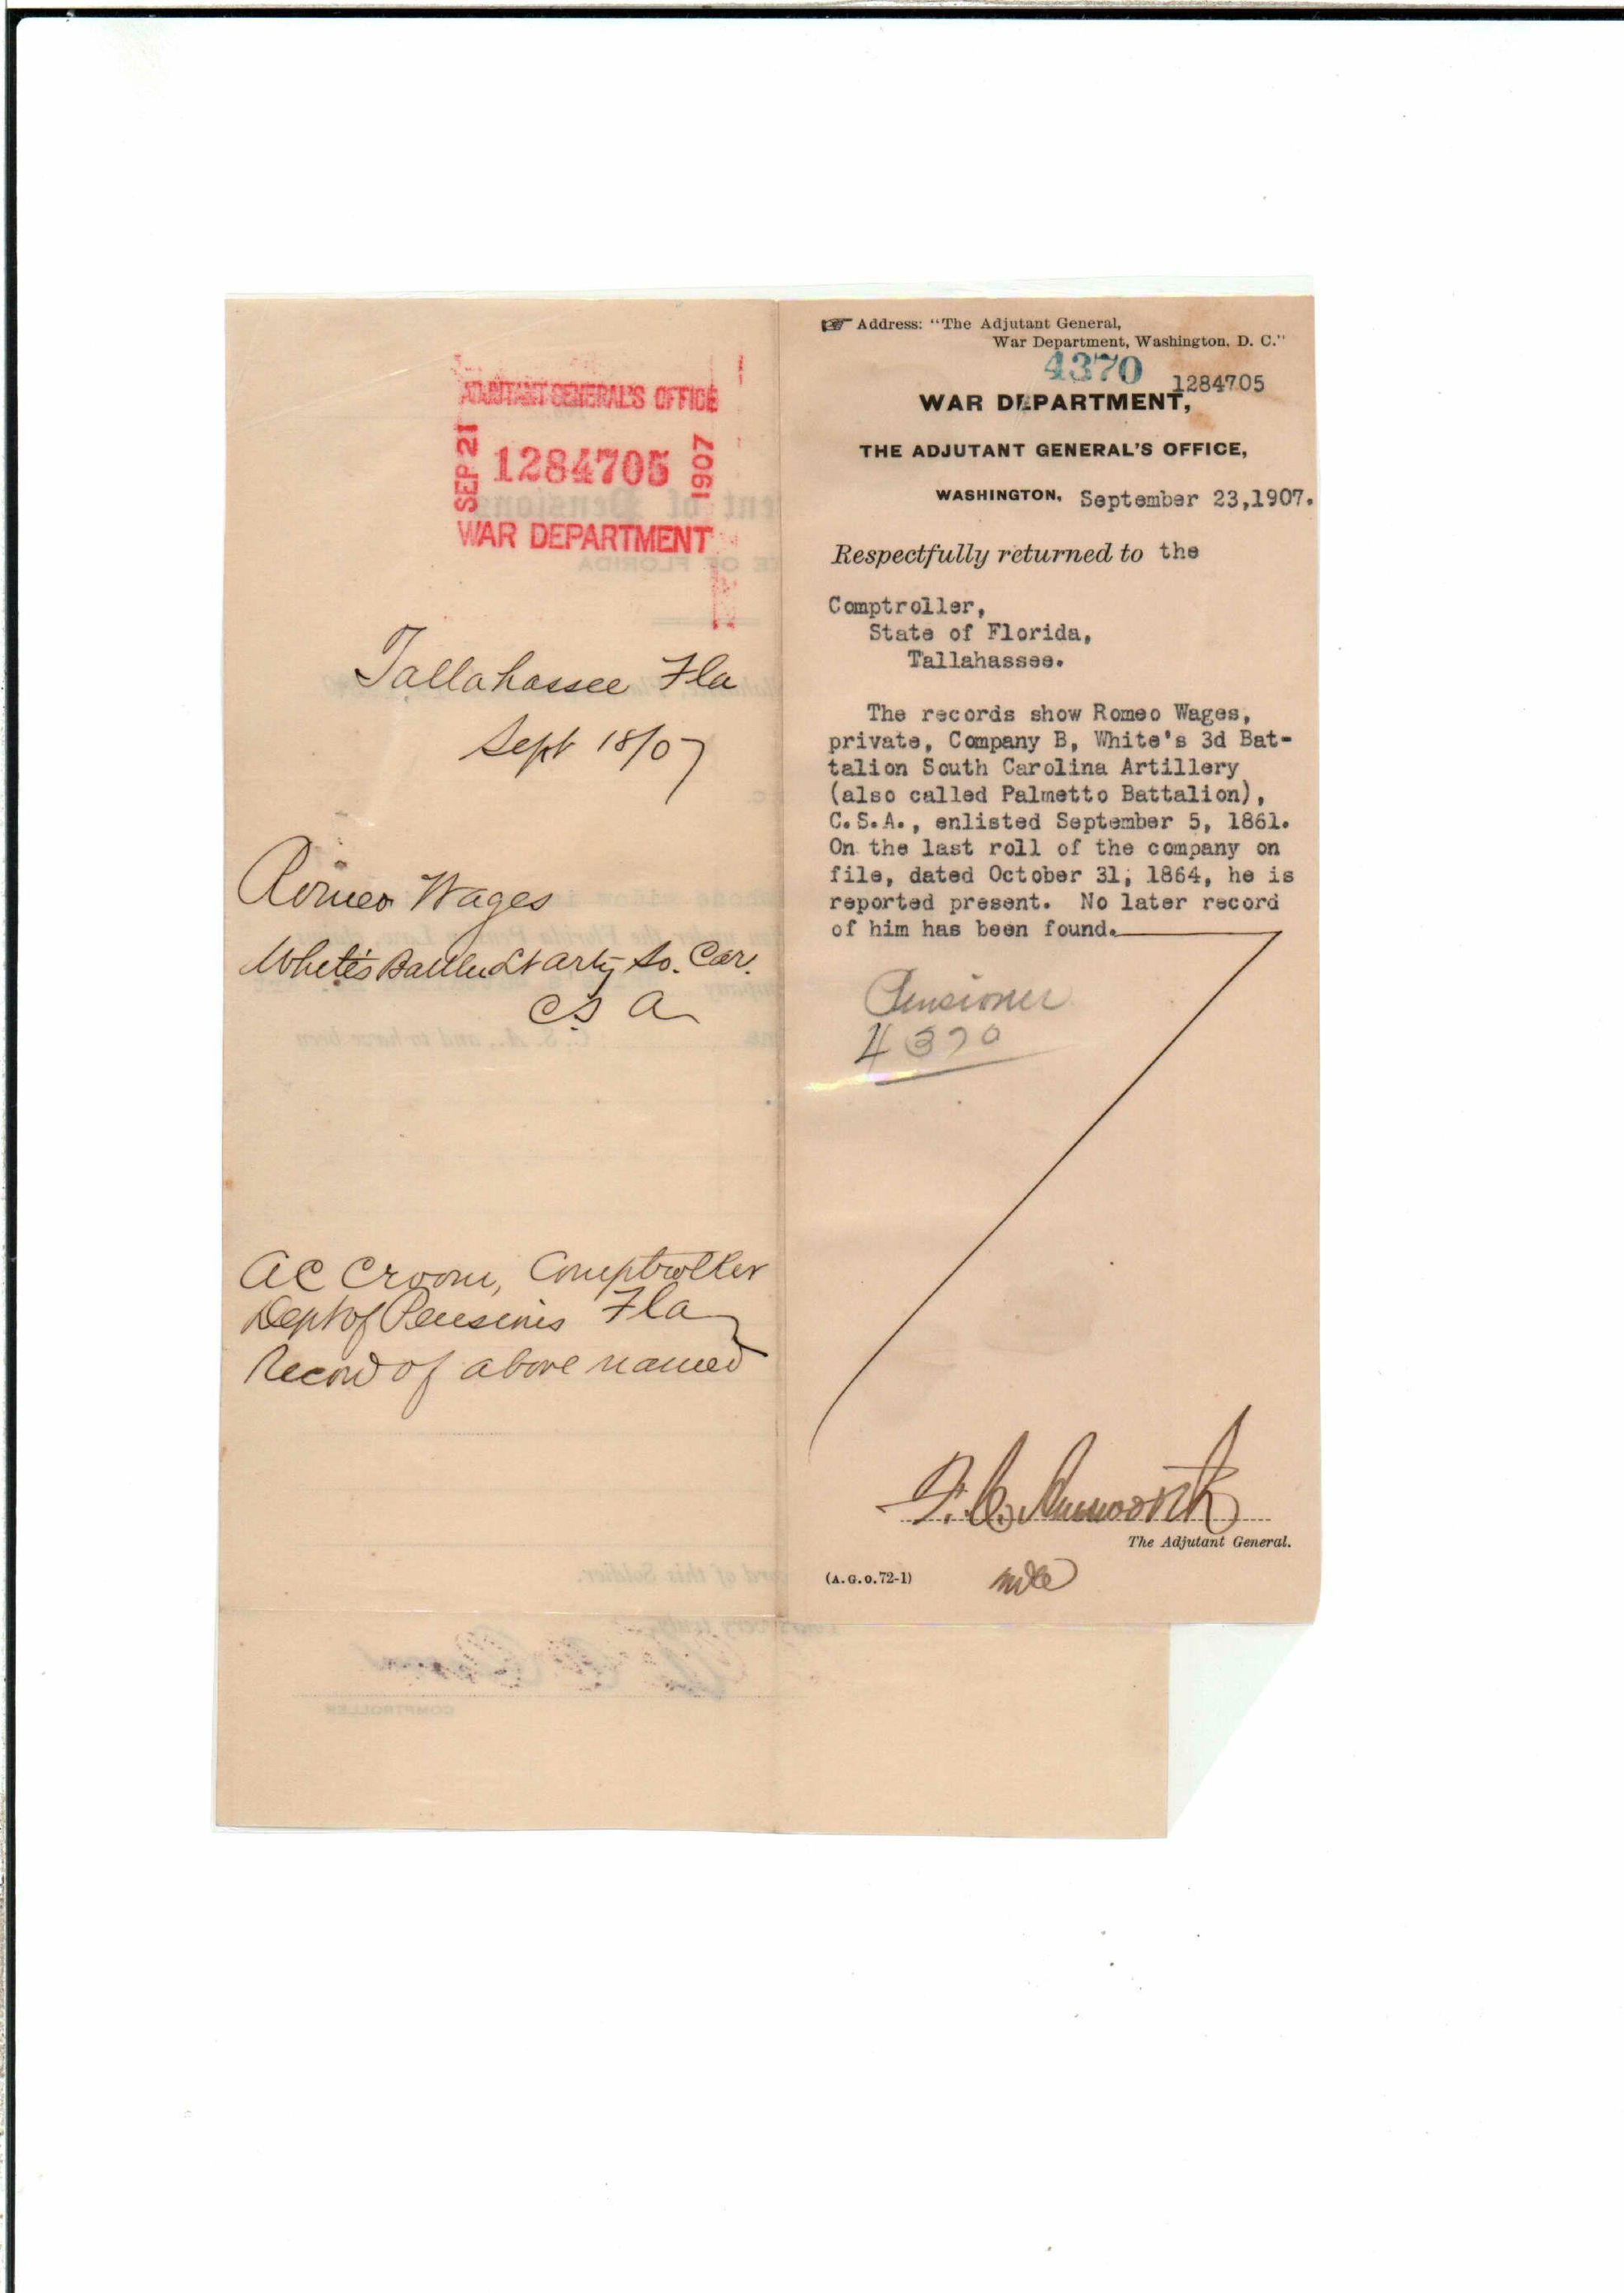 ADJUTANT GENERAL'S OFFICE
SEP 21 1284705 1907
WAR DEPARTMENT
Tallahassee Fla
Sept 18/07
Romeo Wages
White's Battln Lt Arty So. Car.
C S A
A C Croom, Comptroller
Dept of Pensions Fla
Record of above named
☞ Address: "The Adjutant General,
War Department, Washington, D. C."
4370
1284705
WAR DEPARTMENT,
THE ADJUTANT GENERAL'S OFFICE,
WASHINGTON, September 23,1907.
Respectfully returned to the
Comptroller,
State of Florida,
Tallahassee.
The records show Romeo Wages,
private, Company B, White's 3d Bat-
talion South Carolina Artillery
(also called Palmetto Battalion),
C.S.A., enlisted September 5, 1861.
On the last roll of the company on
file, dated October 31, 1864, he is
reported present. No later record
of him has been found.
Pensioner
4370
F. C. Ainsworth
The Adjutant General.
(A.G.O.72-1)
COMPTROLLER